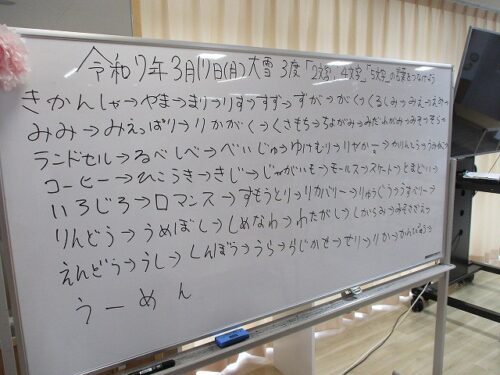 令和7年3月17日(月)大雪 3度 「2文字」「4文字」「5文字」の言葉をつなげよう
きかんしゃ→やま→まり→りす→すず→ずが→がくくるしみ→みえ→
みみ→みえっぱり→りかがく→くさもち→ちよがみ→みだれがみ→みそ→そら→
ランドセル→るべしべ→べいじゅ→ゆけむり→りやかー→かりんとう→
コーヒー→ひこうき→きじ→じゃがいも→モールス→スケート→とまどい→
いろじろ→ロマンス→すもうとり→リカバリー→りゅうぐう→
りんどう→うめぼし→しめなわ→わたがし→しからみ→みそさざえ→
えんどう→うし→しんぼう→うら→らじかせ→せり→りか→
うーめん